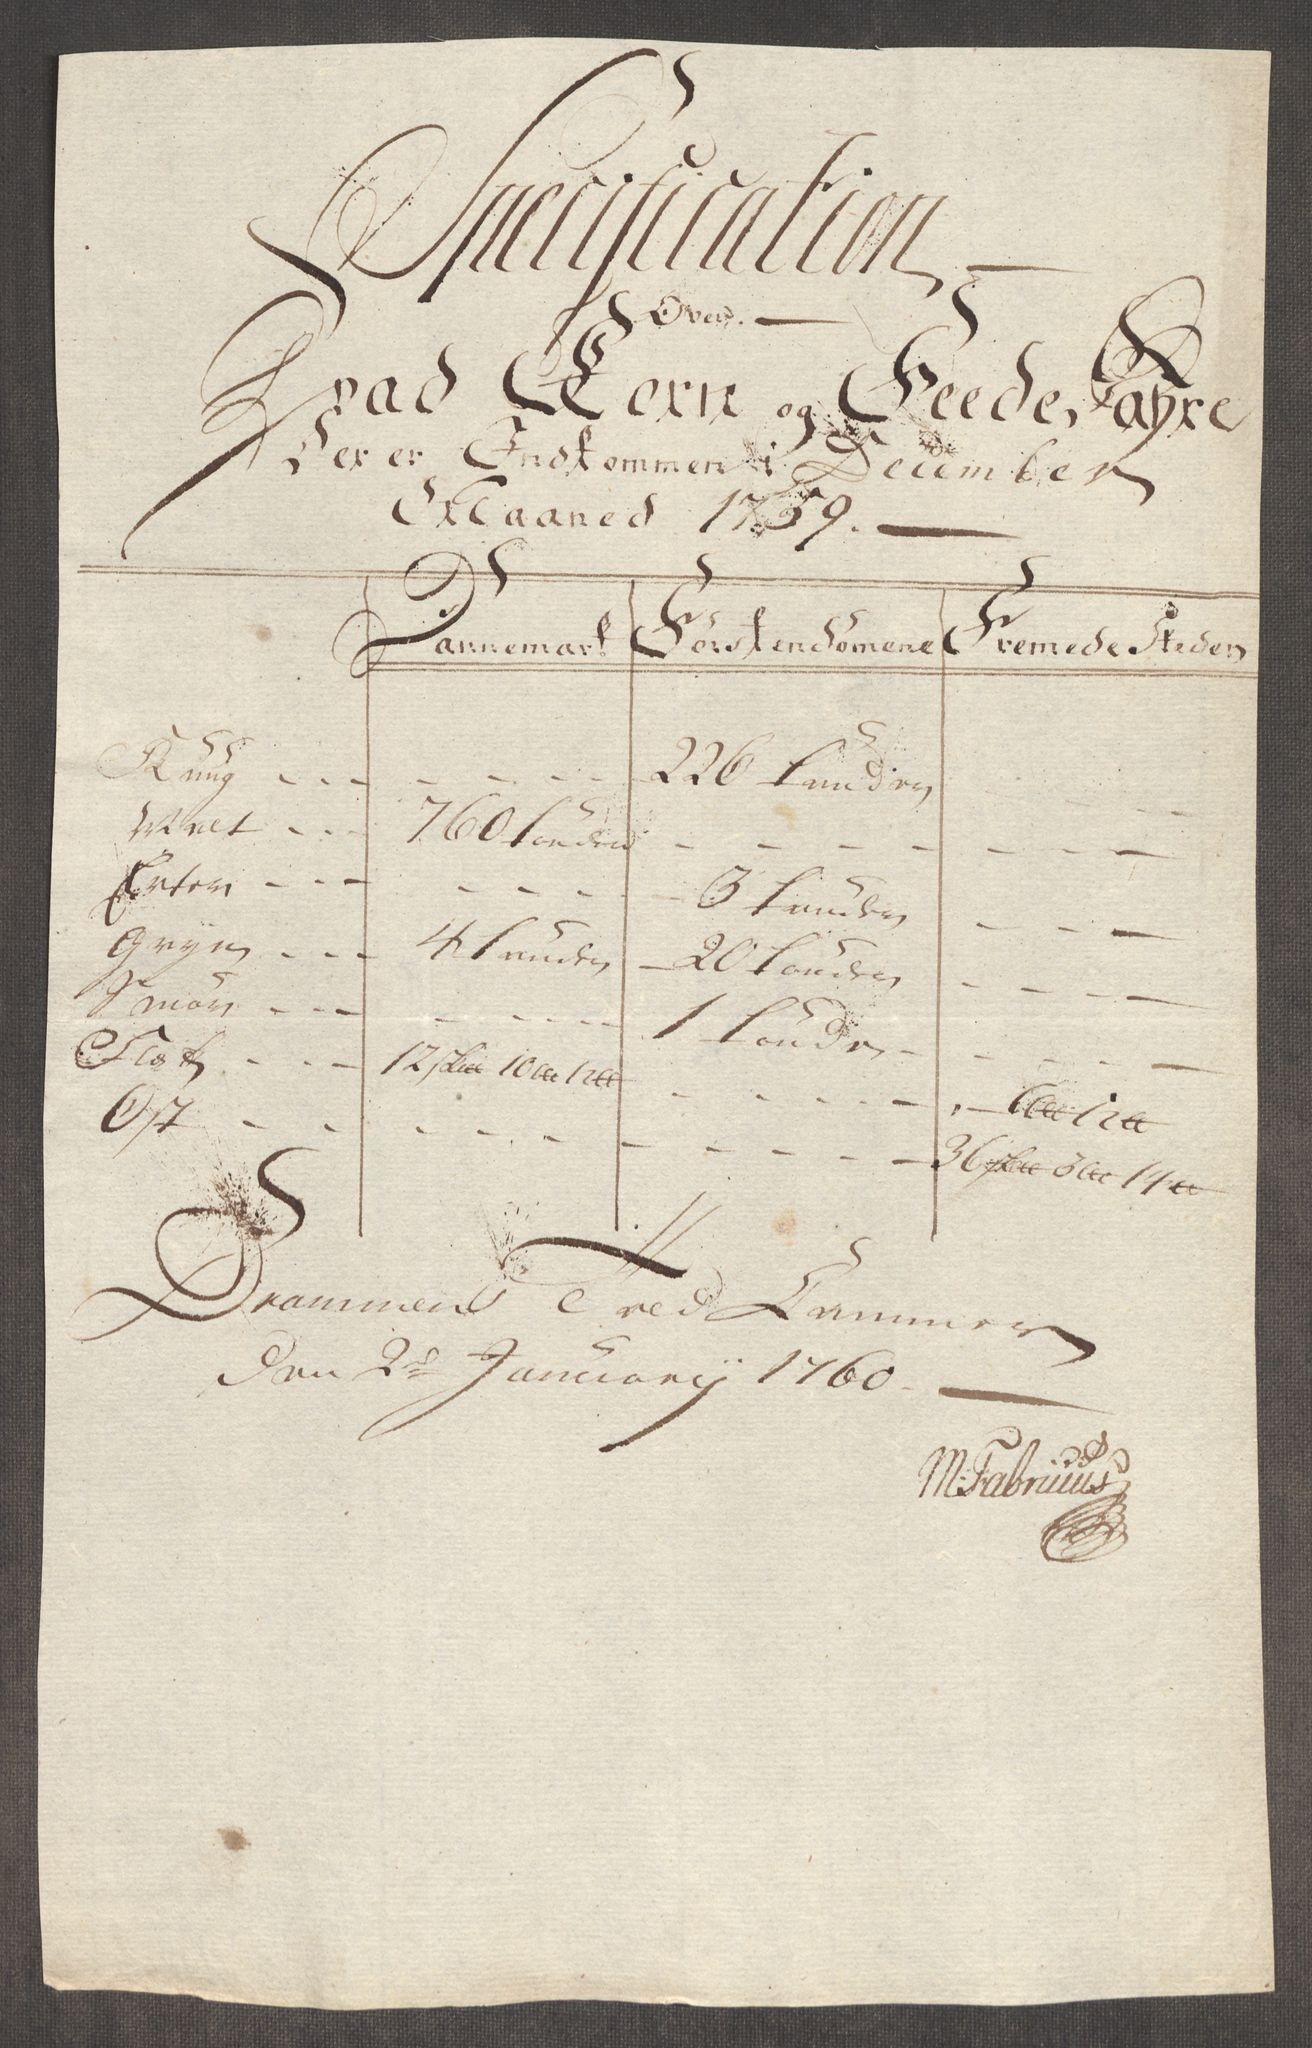 Specification
Over
Hvad Korn og Feede Kayre
Der er Indkommen i December
Maaned 1759.
Dannemark Förstendömene Fremede Steder
Rüüg - - - - - - - 226 tønder - -
Malt - - - 760 tønder - - - - - - - -
Erter - - - - - - - 3 tønder - - -
Gryn - - - 4 tønder 20 tønder - - -
Smör - - - - - - - 1 tønde - - - -
12 10 12
Ost - - - - - - - - - - - 36 3 14
Drammens Told Cammer
den 2d January 1760.
M: Fabritius